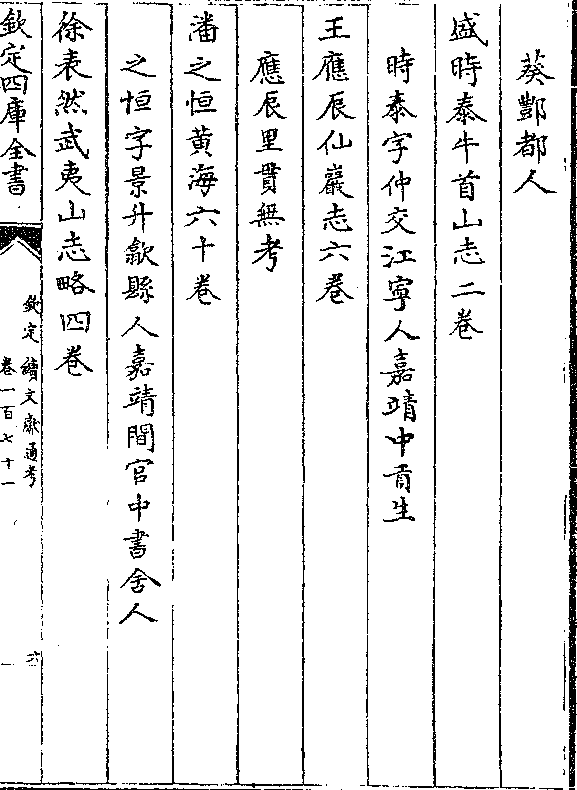 葵酆都人
盛時泰牛首山志二卷
時泰字仲交江寧人嘉靖中貢生
王應辰仙巖志六卷
應辰里貫無考
潘之恒黄海六十卷
之恒字景升歙縣人嘉靖間官中書舍人
徐表然武夷山志略四卷
欽定四庫全書
欽定續文獻通考
卷一百七十一
六